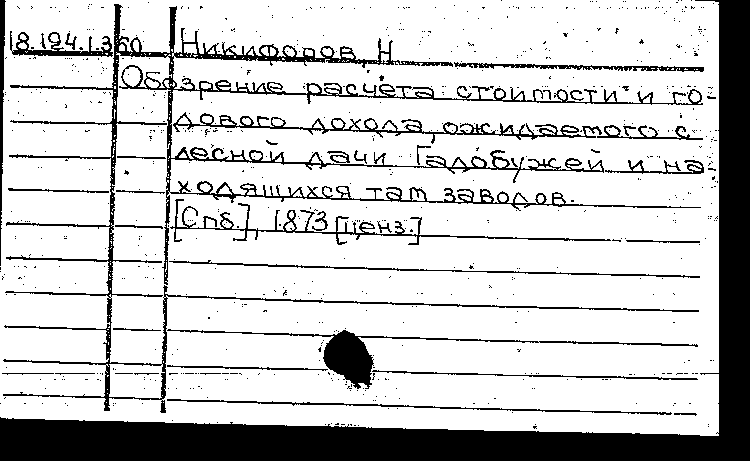 18.194.1.360 Никифоров, Н
Обозрение расчета стоимости и го-
дового дохода, ожидаемого с
лесной дачи Гадобужей и на-
ходящихся там заводов.
[Спб.], 1873 [ценз.]